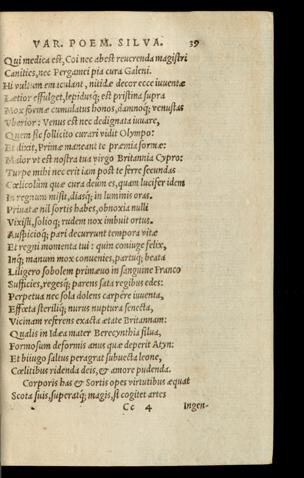 VAR. POEM. SILVA. 39
Qui medica est, Coi nec abest reuerenda magistri
Canities, nec Pergamei pia cura Galeni.
Hi vultum emaculant, nitidæ decor ecce iuuentæ
Lætior effulget, lepidusq; est pristina supra
Mox formæ cumulatus honos, damnoq; venustas
Vberior: Venus est nec dedignata iuuare,
Quem sic sollicito curari vidit Olympo:
Et dixit, Primæ maneant te præmia formæ:
Maior vt est nostra tua virgo Britannia Cypro:
Turpe mihi nec erit iam post te ferre secundas
Cœlicolûm quæ cura deûm es, quam lucifer idem
In regnum misit, diasq; in luminis oras.
Priuatæ nil sortis habes, obnoxia nulli
Vixisti, solioq; rudem nox imbuit ortus.
Auspicioq; pari decurrunt tempora vitæ
Et regni momenta tui: quin coniuge felix,
Inq; manum mox conuenies, partuq; beata
Liligero sobolem primæuo in sanguine Franco
Sufficies, regesq; parens sata regibus edes:
Perpetua nec sola dolens carpêre iuuenta,
Effœta steriliq; nurus nuptura senecta,
Vicinam referens exacta ætate Britannam:
Qualis in Idæa mater Berecynthia silua,
Formosum deformis anus quæ deperit Atyn:
Et biiugo saltus peragrat subuecta leone,
Cœlitibus ridenda deis, & amore pudenda.
Corporis has & Sortis opes virtutibus æquat
Scota suis, superatq; magis, si cogitet artes
Cc 4 Ingen-